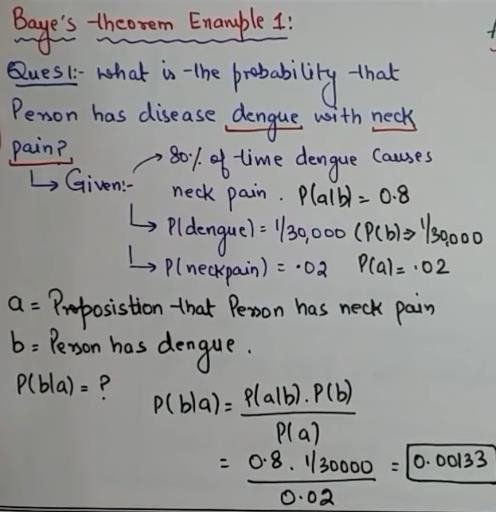 Baye's theorem Example 1:
Ques1:- what is the probability that
Person has disease dengue with neck
pain?
Given:- 80% of time dengue causes
neck pain. P(a|b) = 0.8
P(dengue) = 1/30,000 (P(b) => 1/30,000
P(neckpain) = .02 P(a) = .02
a = Proposistion that Person has neck pain
b = Person has dengue.
P(b|a) = ?
P(b|a) = P(a|b). P(b)
P(a)
= 0.8 . 1/30000 = 0.00133
0.02